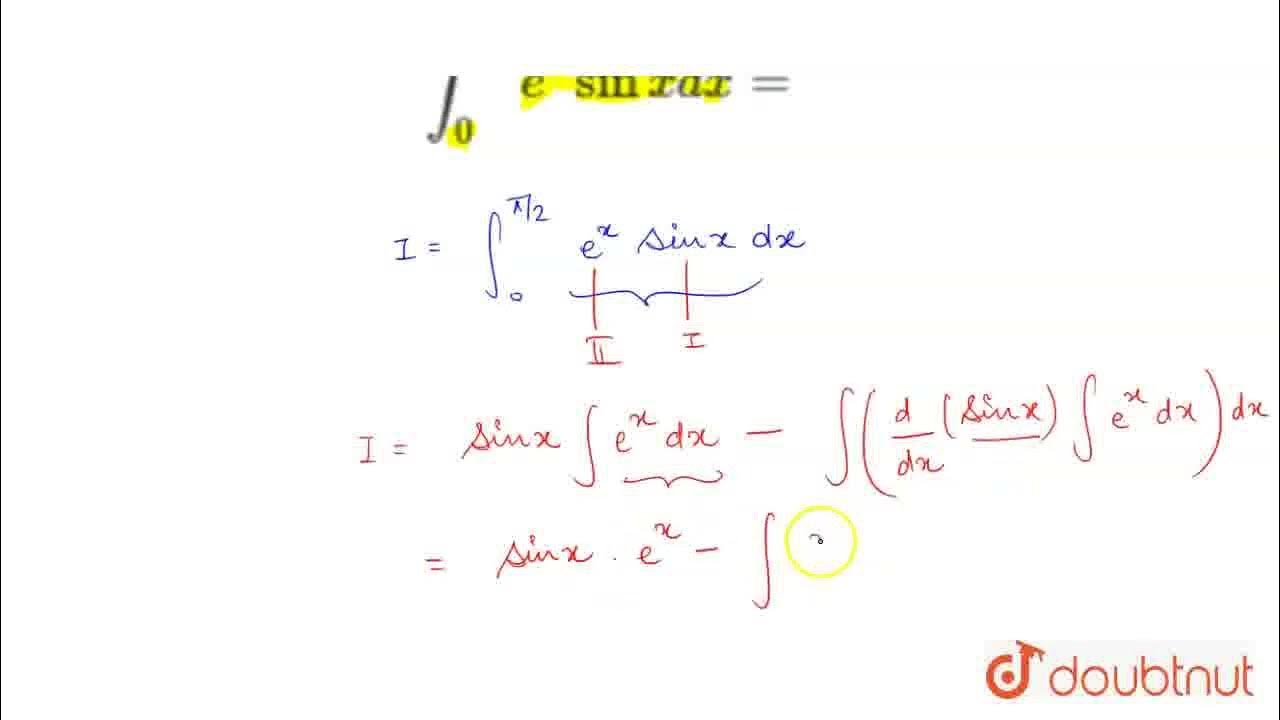 ∫₀ e sin x dx =
I = ∫₀^{π/2} e^x sin x dx
II I
I = sin x ∫ e^x dx − ∫ ( d/dx (sin x) ∫ e^x dx ) dx
= sin x . e^x − ∫
doubtnut